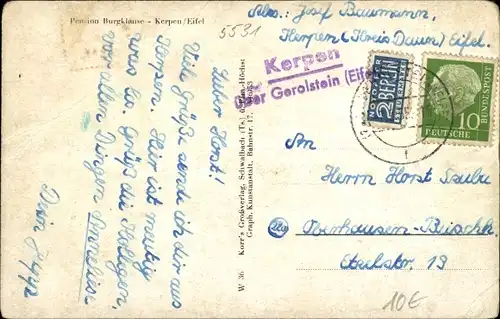 Pension Burgklause - Kerpen/Eifel
5531
Abs.: Josef Baumann,
Kerpen (Kreis Daun) Eifel.
Kerpen
über Gerolstein (Eifel)
NOTOPFER
2 BERLIN
STEUERMARKE
10
DEUTSCHE
BUNDESPOST
Lieber Horst!
Viele Grüße sende ich dir aus
Kerpen. Hier ist mächtig
was los. Grüß die Kollegen,
vor allen Dingen
Dein
Korr's Großverlag, Schwalbach (Ts.)
Graph. Kunstanstalt, Bahnstr. 17,
W 36
An
Herrn Horst
Oberhausen-Buschh.
19
10€